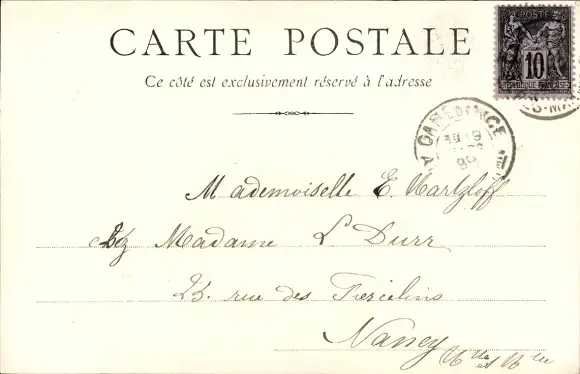 CARTE POSTALE
Ce côté est exclusivement réservé à l'adresse
POSTES
10
RÉPUBLIQUE FRANÇAISE
GARE DE NICE
Mademoiselle E. Hartzloff
chez Madame L Durr
25. rue des Tiercelins
Nancy Mthe et Mlle